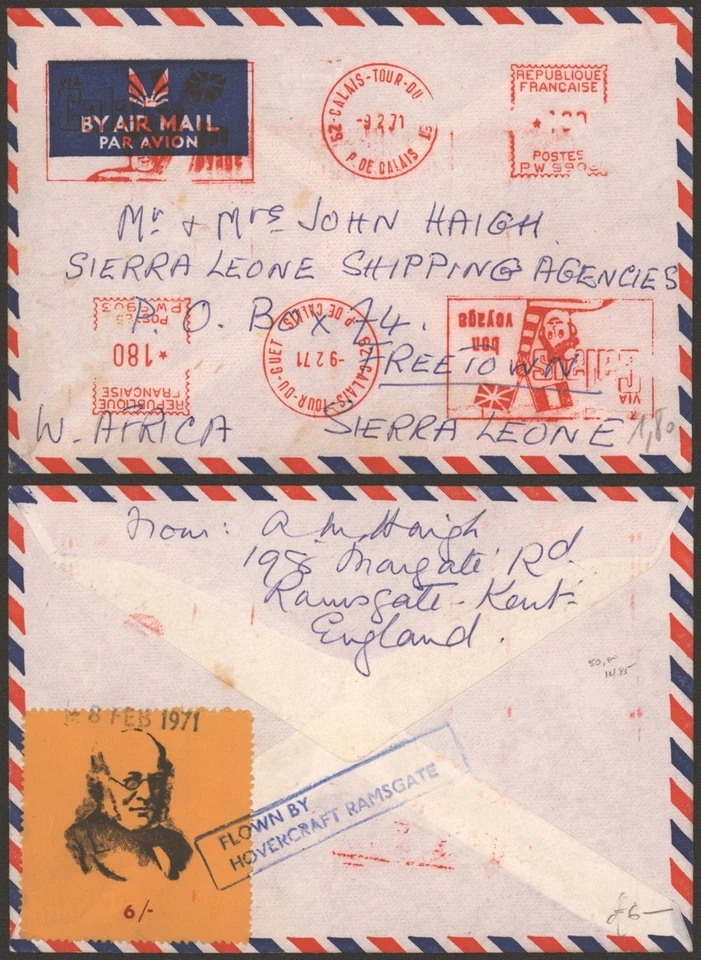 VIA
BY AIR MAIL
PAR AVION
62-CALAIS-TOUR-DU-
-9 2 71
P. DE CALAIS
REPUBLIQUE
FRANCAISE
POSTES
Mr & Mrs JOHN HAIGH
SIERRA LEONE SHIPPING AGENCIES
P. O. Box 74.
FREETOWN
W. AFRICA SIERRA LEONE
1,80
REPUBLIQUE
FRANCAISE
* 180
POSTES
62-CALAIS-TOUR-DU-GUET
-9 2 71
P. DE CALAIS
VIA
Calais
bon
voyage
From: A. M. Haigh
198 Margate Rd.
Ramsgate - Kent
England.
8 FEB 1971
6/-
FLOWN BY
HOVERCRAFT RAMSGATE
£6-